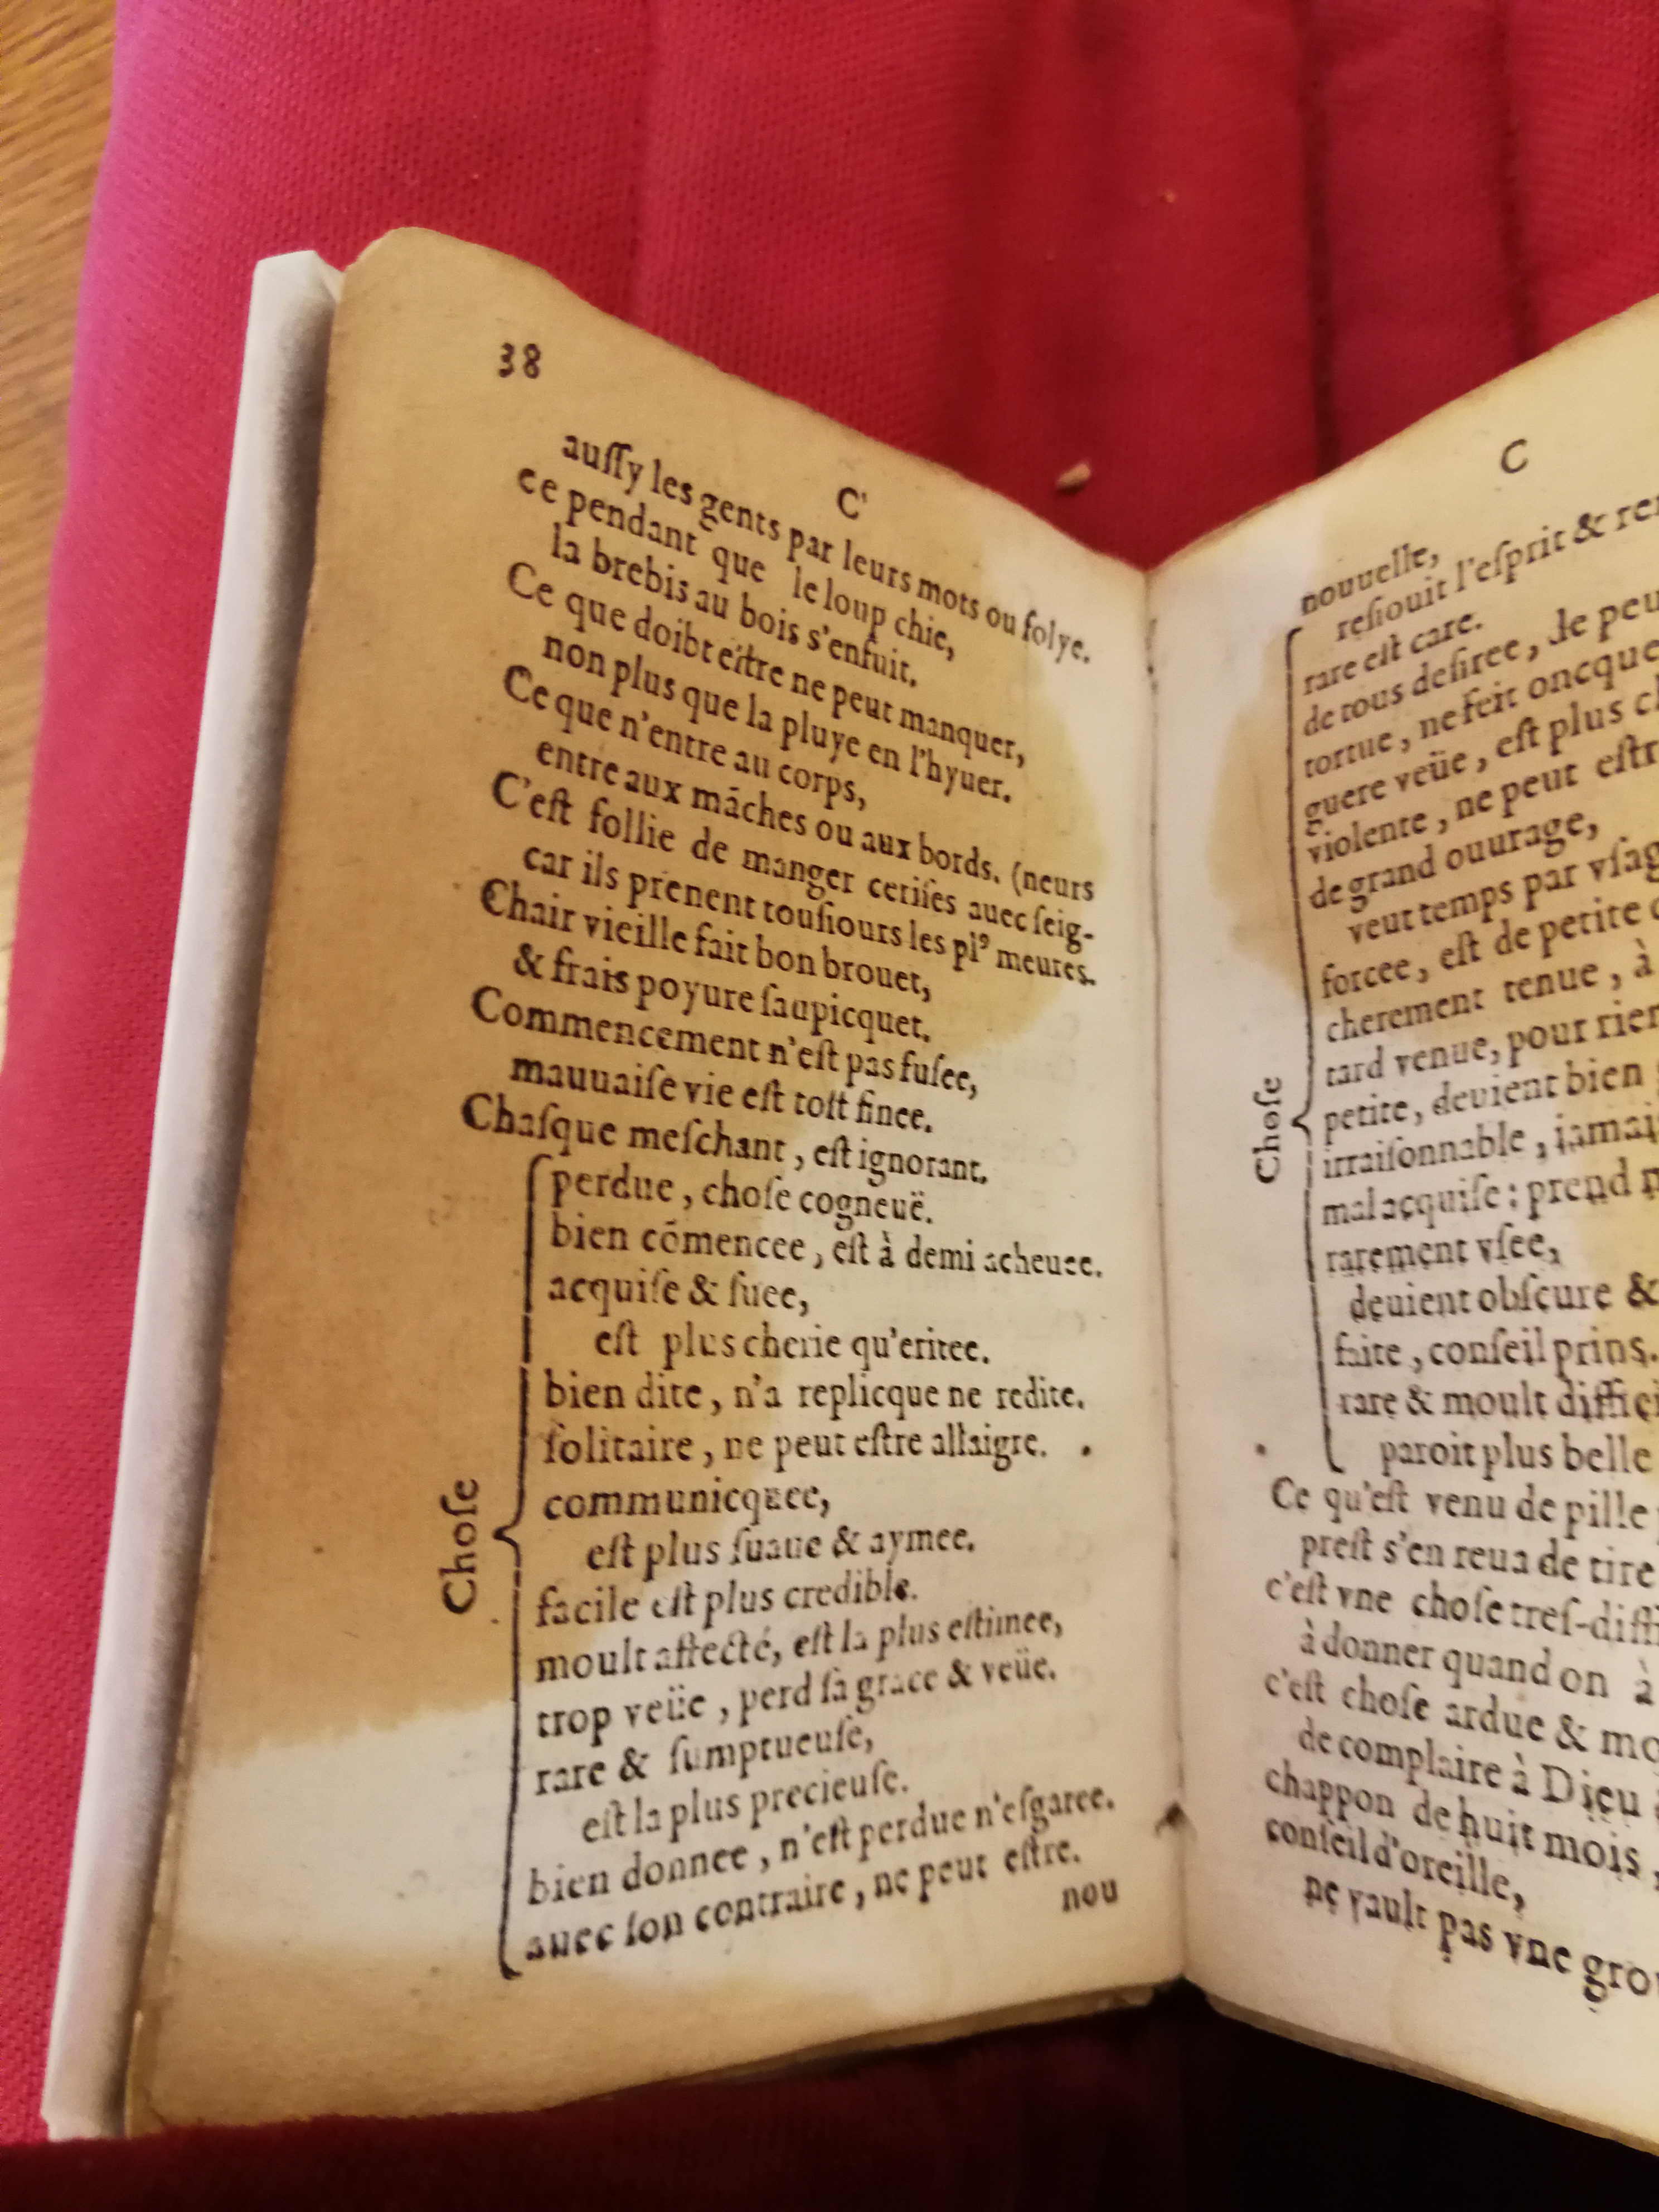 38
C
auſſy les gents par leurs mots ou folye.
ce pendant que le loup chie,
la brebis au bois s'enfuit.
Ce que doibt eſtre ne peut manquer,
non plus que la pluye en l'hyuer.
Ce que n'entre au corps,
entre aux māches ou aux bords. (neurs
C'eſt follie de manger ceriſes auec ſeig-
car ils prenent touſiours les plꝰ meures.
Chair vieille fait bon brouet,
& frais poyure ſaupicquet.
Commencement n'eſt pas fuſee,
mauuaiſe vie eſt toſt finee.
Chaſque meſchant, eſt ignorant.
Choſe
perdue, choſe cogneuë.
bien cōmencee, eſt à demi acheuee.
acquiſe & ſuee,
eſt plus cherie qu'eritee.
bien dite, n'a replicque ne redite.
ſolitaire, ne peut eſtre allaigre.
communicquee,
eſt plus ſuaue & aymee.
facile eſt plus credible.
moult affecté, eſt la plus eſtimee,
trop veüe, perd ſa grace & veüe.
rare & ſumptueuſe,
eſt la plus precieuſe.
bien donnee, n'eſt perdue n'eſgaree.
auec ſon contraire, ne peut eſtre.
nou
C
nouuelle,
reſiouit l'eſprit &
rare eſt care.
de tous deſiree, de
tortue, ne feit
guere veüe, eſt plus
violente, ne peut
de grand ouurage,
veut temps par
forcee, eſt de petite
cherement tenue, à
tard venue, pour
Choſe
petite, deuient bien
irraiſonnable,
mal acquiſe: prend
rarement vſee,
deuient obſcure &
faite, conſeil prins.
rare & moult
paroit plus belle
Ce qu'eſt venu de pille
preſt s'en reua de tire
c'eſt vne choſe
à donner quand on à
c'eſt choſe ardue &
de complaire à Dieu
chappon de huit mois,
conſeil d'oreille,
ne vault pas vne